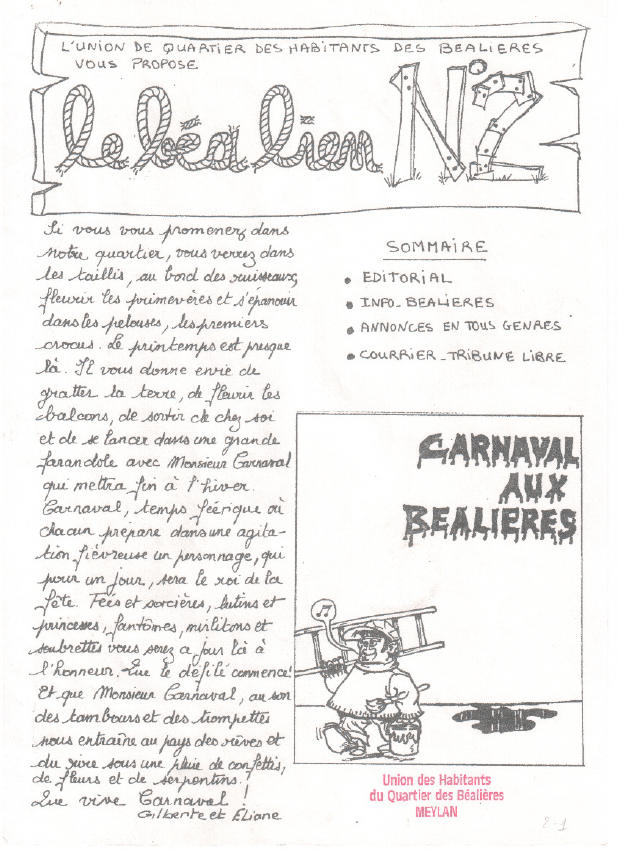 L'UNION DE QUARTIER DES HABITANTS DES BEALIERES
VOUS PROPOSE
le béa lien N°2
Si vous vous promenez dans
notre quartier, vous verrez dans
les taillis, au bord des ruisseaux,
fleurir les primevères et s'épanouir
dans les pelouses, les premiers
crocus. Le printemps est presque
là. Il vous donne envie de
gratter la terre, de fleurir les
balcons, de sortir de chez soi
et de se lancer dans une grande
farandole avec Monsieur Carnaval
qui mettra fin à l'hiver.
Carnaval, temps féerique où
chacun prépare dans une agita-
tion fiévreuse un personnage, qui
pour un jour, sera le roi de la
fête. Fées et sorcières, lutins et
princesses, fantômes, mirlitons et
soubrettes vous serez à jour là à
l'honneur. Que le défilé commence!
Et que Monsieur Carnaval, au son
des tambours et des trompettes
nous entraîne au pays des rêves et
du rire sous une pluie de confettis,
de fleurs et de serpentins.
Que vive Carnaval !
Gilberte et Eliane
SOMMAIRE
• EDITORIAL
• INFO-BEALIERES
• ANNONCES EN TOUS GENRES
• COURRIER-TRIBUNE LIBRE
CARNAVAL
AUX
BEALIERES
Union des Habitants
du Quartier des Béalières
MEYLAN
2-1